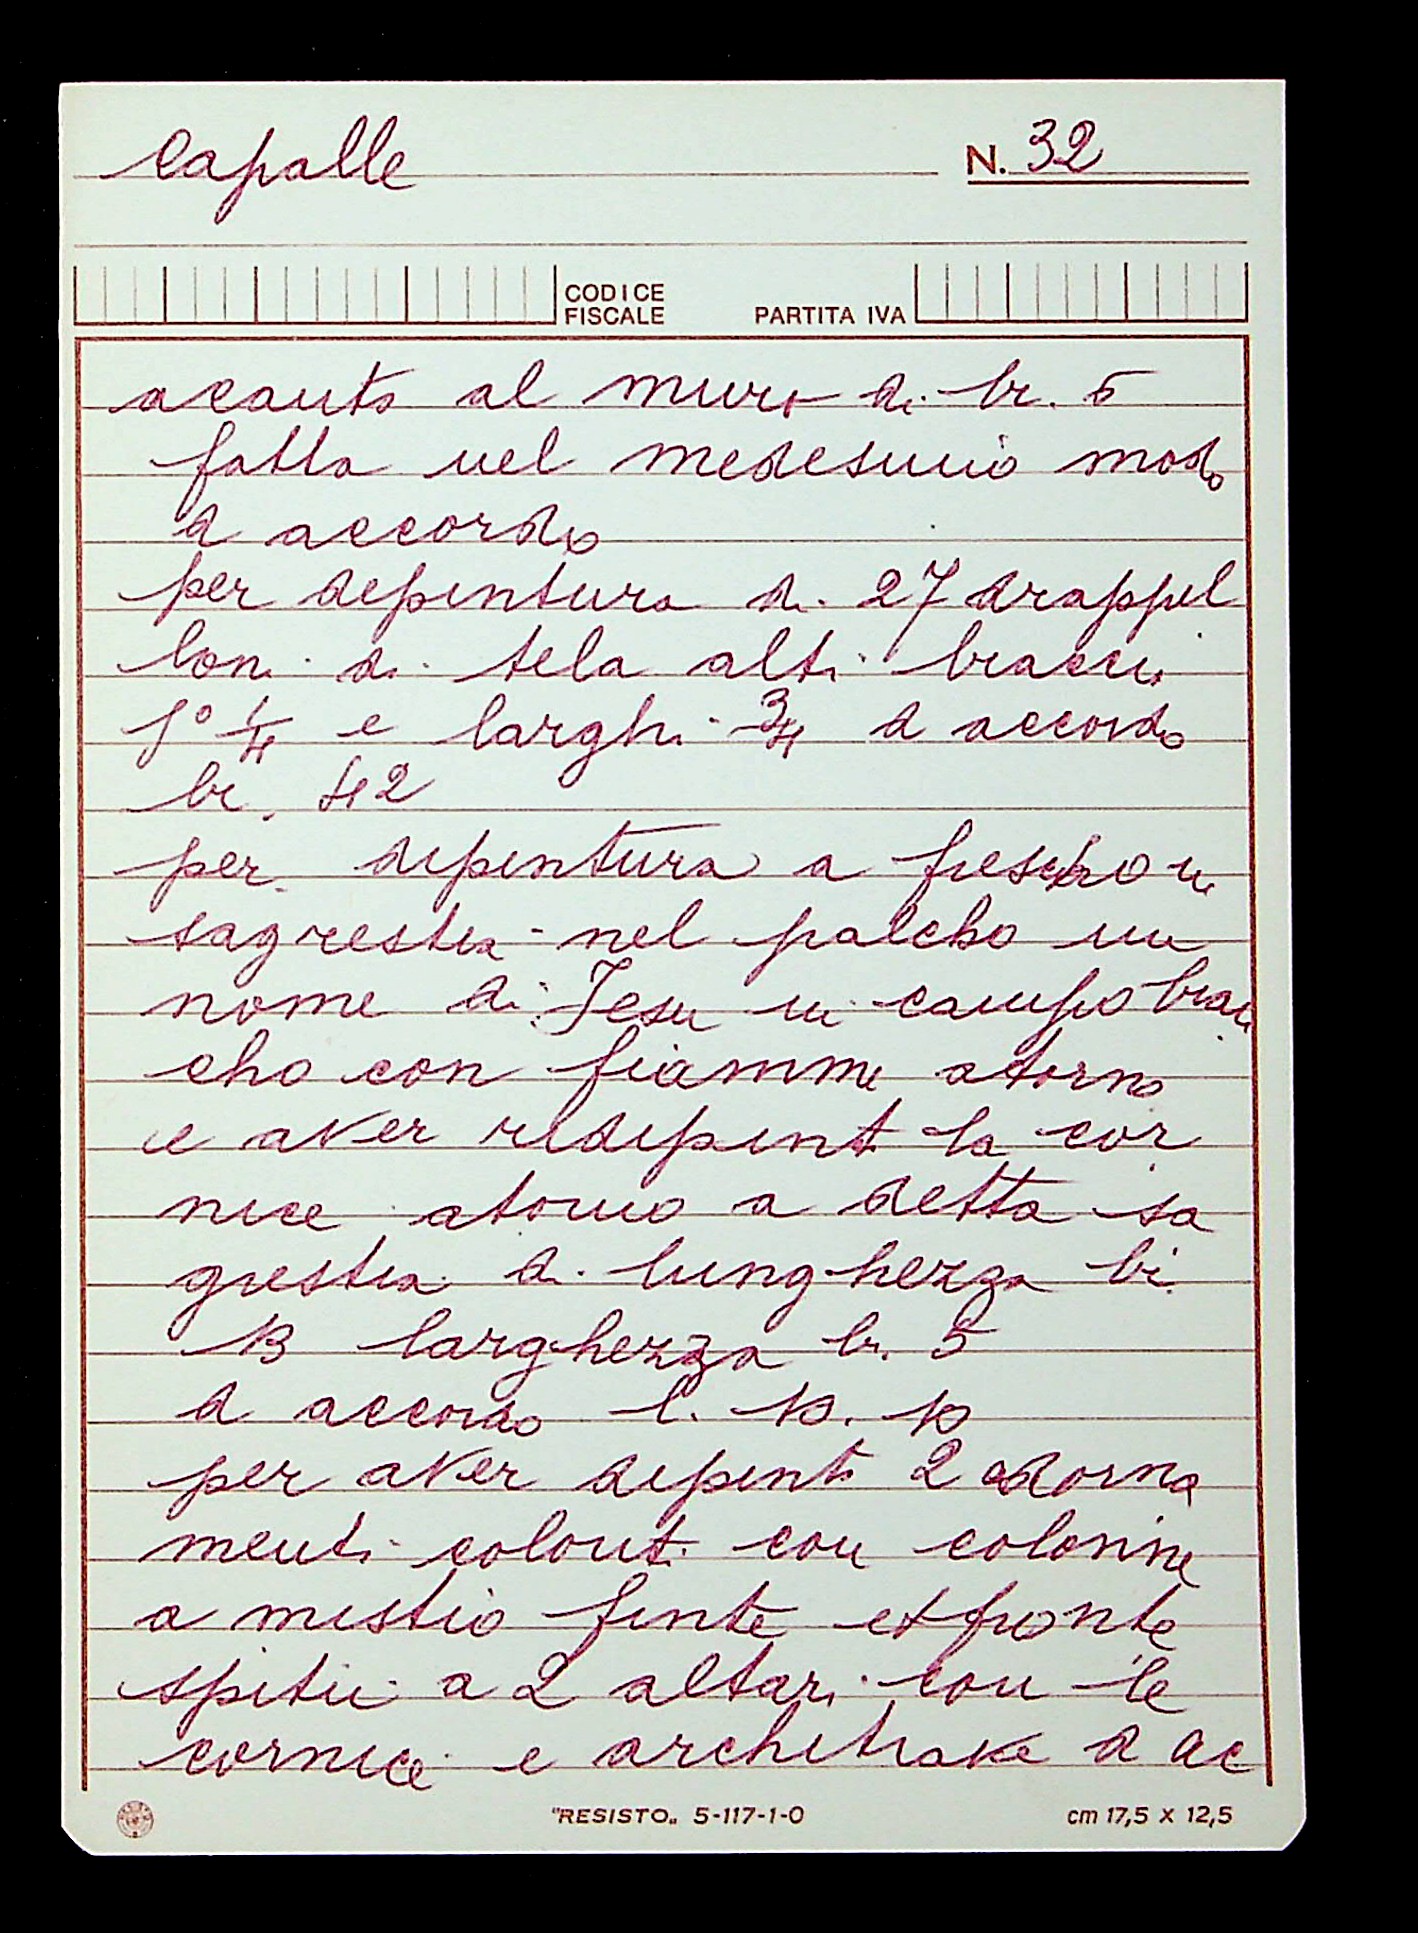 Capalle
N. 32
CODICE
FISCALE
PARTITA IVA
acanto al muro di br. 5
fatta nel medesimo modo
d accordo
per depintura di 27 drappel
loni di tela alti bracci
1° 1/4 e larghi 3/4 d accordo
br. 42
per depintura a frescho in
sagrestia nel palcho un
nome di Jesu in campo bian
cho con fiamme atorno
e aver ridipint la cor
nice atorno a detta sa
grestia di lunghezza br.
13 larghezza br. 5
d accordo l. 10. 10
per aver depinti 2 adorna
menti coloriti con colonne
a mistio finte et fronte
spitii a 2 altari con le
cornice e architrave d ac
"RESISTO" 5-117-1-0
cm 17,5 x 12,5